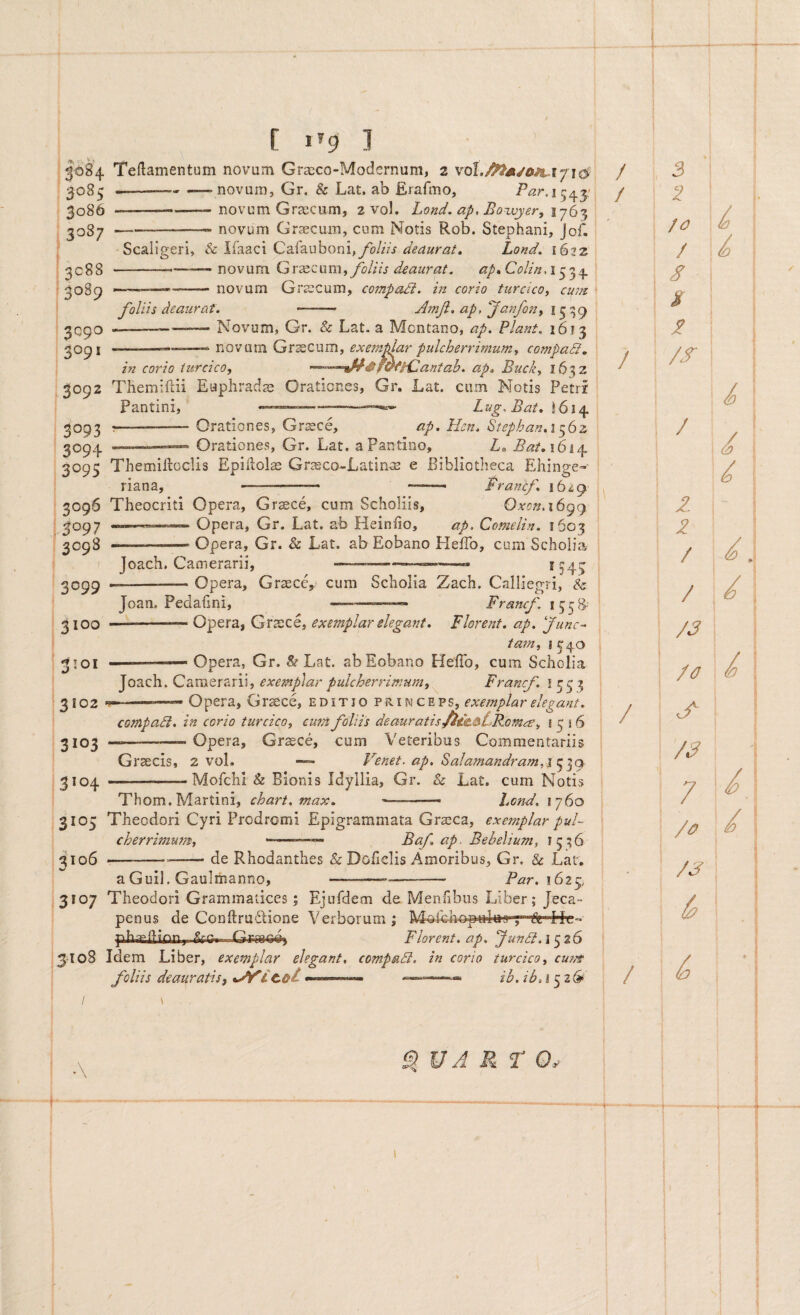 [ 119 ]
3084 Teſtamentum novum Græco-Modernum, 2 vol. 1710 / 3
3085 ——— —— novum, Gr. & Lat. ab Eraſmo, Par. 1543 / 2
3086 ——— —— novum Græcum, 2 vol. Lond. ap. Bowyer, 1763 10 6
3087 ——— —— novum Græcum, cum Notis Rob. Stephani, Joſ.
Scaligeri, & Iſaaci Caſauboni, foliis deaurat. Lond. 1622 / 6
3088 ——— —— novum Græcum, foliis deaurat. ap. Colin. 1534 8
3089 ——— —— novum Græcum, compact. in corio turcico, cum
foliis deaurat. —— Amſt. ap. Janſon, 1539 8
3090 ——— —— Novum, Gr. & Lat. a Montano, ap. Plant. 1613 2
3091 ——— —— novum Græcum, exemplar pulcherrimum, compact.
in corio turcico, —— Cantab. ap. Buck, 1632 / 15
3092 Themiſtii Euphradæ Orationes, Gr. Lat. cum Notis Petri
Pantini, ——— —— Lug. Bat. 1614 6
3093 ——— Orationes, Græcé, ap. Hen. Stephan. 1562 /
3094 ——— Orationes, Gr. Lat. a Pantino, L. Bat. 1614 6
3095 Themiſtoclis Epiſtolæ Græco-Latinæ e Bibliotheca Ehinge-
riana, ——— —— Francf. 1629 6
3096 Theocriti Opera, Græcé, cum Scholiis, Oxon. 1699 2
3097 ——— Opera, Gr. Lat. ab Heinſio, ap. Comelin. 1603 2
3098 ——— Opera, Gr. & Lat. ab Eobano Heſſo, cum Scholia
Joach. Camerarii, ——— —— 1545 / 6
3099 ——— Opera, Græcé, cum Scholia Zach. Calliegri, &
Joan. Pedaſini, ——— Francf. 1558 / 6
3100 ——— Opera, Græcé, exemplar elegant. Florent. ap. Junc-
tam, 1540 13
3101 ——— Opera, Gr. & Lat. ab Eobano Heſſo, cum Scholia
Joach. Camerarii, exemplar pulcherrimum, Francf. 1553 10 6
3102 ——— Opera, Græcé, EDITIO PRINCEPS, exemplar elegant.
compact. in corio turcico, cum foliis deauratis Romæ, 1516 / 5
3103 ——— Opera, Græcé, cum Veteribus Commentariis
Græcis, 2 vol. — Venet. ap. Salamandram, 1539 13
3104 ——— Moſchi & Bionis Idyllia, Gr. & Lat. cum Notis
Thom. Martini, chart. max. —— Lond. 1760 7 6
3105 Theodori Cyri Prodromi Epigrammata Græca, exemplar pul-
cherrimum, —— Baſ. ap. Bebelium, 1536 10 6
3106 ——— —— de Rhodanthes & Doſiclis Amoribus, Gr. & Lat.
a Guil. Gaulmanno, ——— —— Par. 1625, 13
3107 Theodori Grammatices; Ejuſdem de Menſibus Liber; Jeca-
penus de Conſtructione Verborum; Moſchopulus; & He-
phæſtion, &c. Græcé, Florent. ap. Junct. 1526 6
3108 Idem Liber, exemplar elegant. compact. in corio turcico, cum
foliis deauratis, —— —— ib. ib. 1526 / 6
QUARTO,